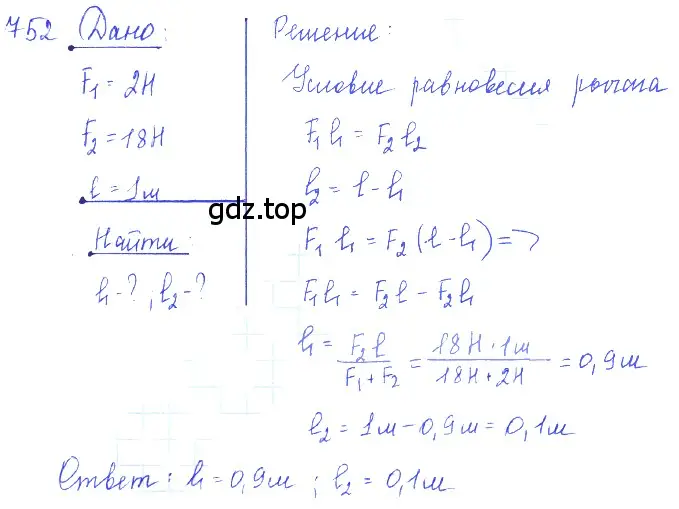 752 Дано:
F₁ = 2Н
F₂ = 18Н
l = 1м
Найти:
l₁ - ? , l₂ - ?
Решение:
Условие равновесия рычага
F₁ l₁ = F₂ l₂
l₂ = l - l₁
F₁ l₁ = F₂ (l - l₁) =>
F₁ l₁ = F₂ l - F₂ l₁
l₁ = F₂ l / (F₁ + F₂) = 18Н · 1м / (18Н + 2Н) = 0,9м
l₂ = 1м - 0,9м = 0,1м
Ответ: l₁ = 0,9м ; l₂ = 0,1м
gdz.top